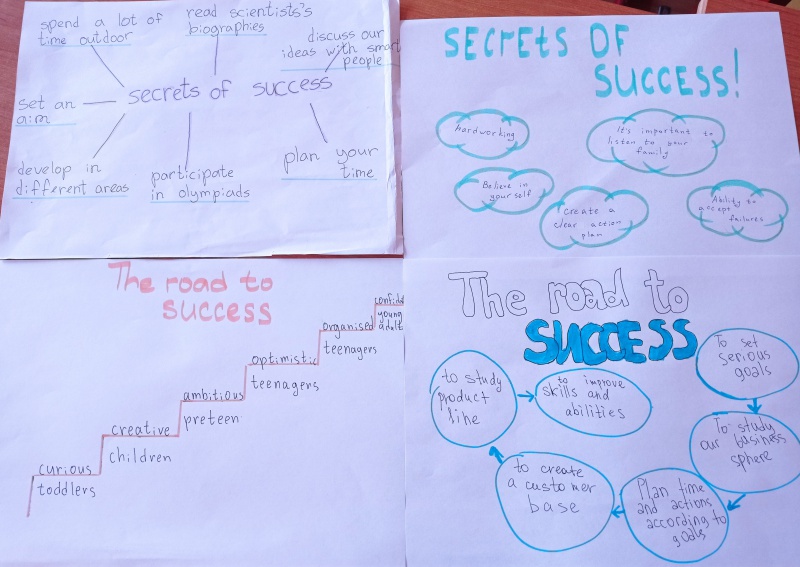 spend a lot of
time outdoor
read scientists's
biographies
discuss our
ideas with smart
people
set an
aim
secrets of success
develop in
different areas
participate
in olympiads
plan your
time
SECRETS OF
SUCCESS!
hardworking
It's important to
listen to your
family
Believe in
yourself
Create a
clear action
plan
Ability to
accept
failures
The road to
SUCCESS
curious
toddlers
creative
children
ambitious
preteen
optimistic
teenagers
organised
teenagers
confid
young
adult
The road to
SUCCESS
To set
serious
goals
To study
our business
sphere
Plan time
and actions
according to
goals
to create
a customer
base
to study
product
line
to improve
skills and
abilities